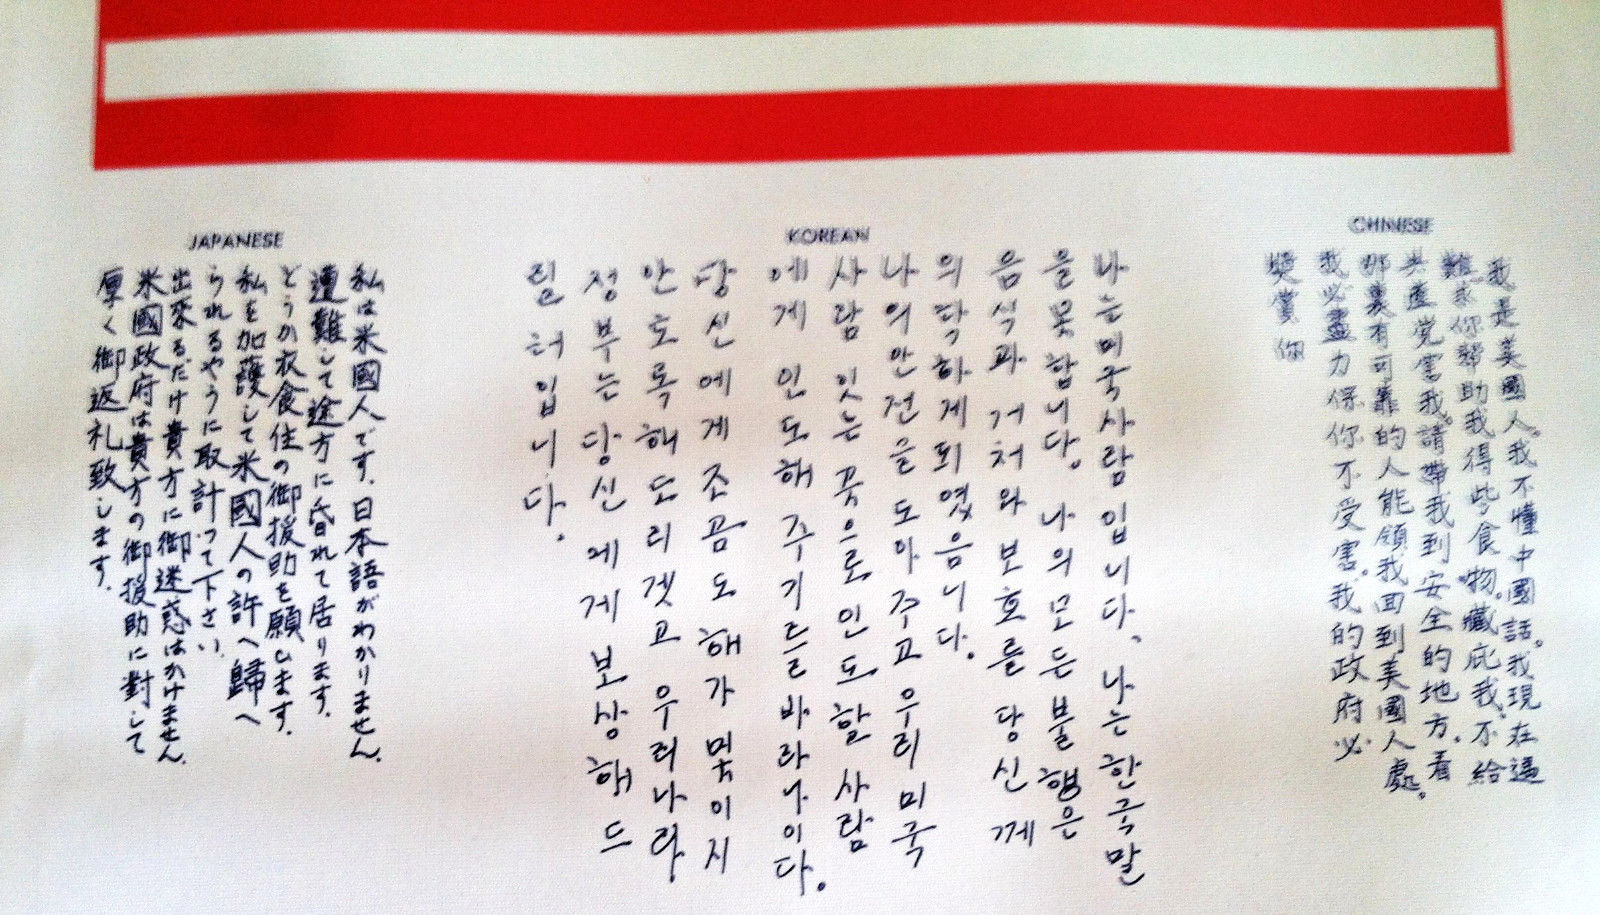 JAPANESE
私は米國人です.日本語がわかりません.
遭難して途方に昏れて居ります.
どうか衣食住の御援助を願します.
私を加護して米國人の許へ歸へ
られるやうに取計って下さい.
出來るだけ貴方に御迷惑はかけません.
米國政府は貴方の御援助に對して
厚く御返礼致します.
KOREAN
나는미국사람입니다. 나는한국말
을못합니다. 나의모든불행은
음식과 거처와보호를당신께
의탁하게되엿음니다.
나의안전을도아주고우리미국
사람잇는곳으로인도할사람
에게 인도해주기를바라나이다.
당신에게조곰도해가및이지
안토록해도리겟고우리나라
정부는당신에게보상해드
릴터입니다.
CHINESE
我是美國人。我不懂中國話。我現在逼
難求你幫助我得些食物。藏庇我、不給
共產党害我。請帶我到安全的地方。看
那裏有可靠的人能領我回到美國人處。
我必盡力保你不受害。我的政府必
獎賞你